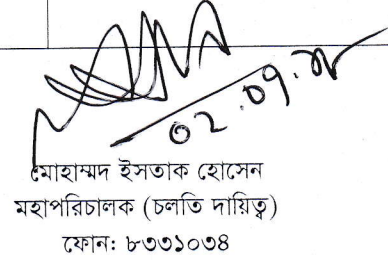 মোহাম্মদ ইসতাক হোসেন
মহাপরিচালক (চলতি দায়িত্ব)
ফোন: ৮৩৩১০৩৪